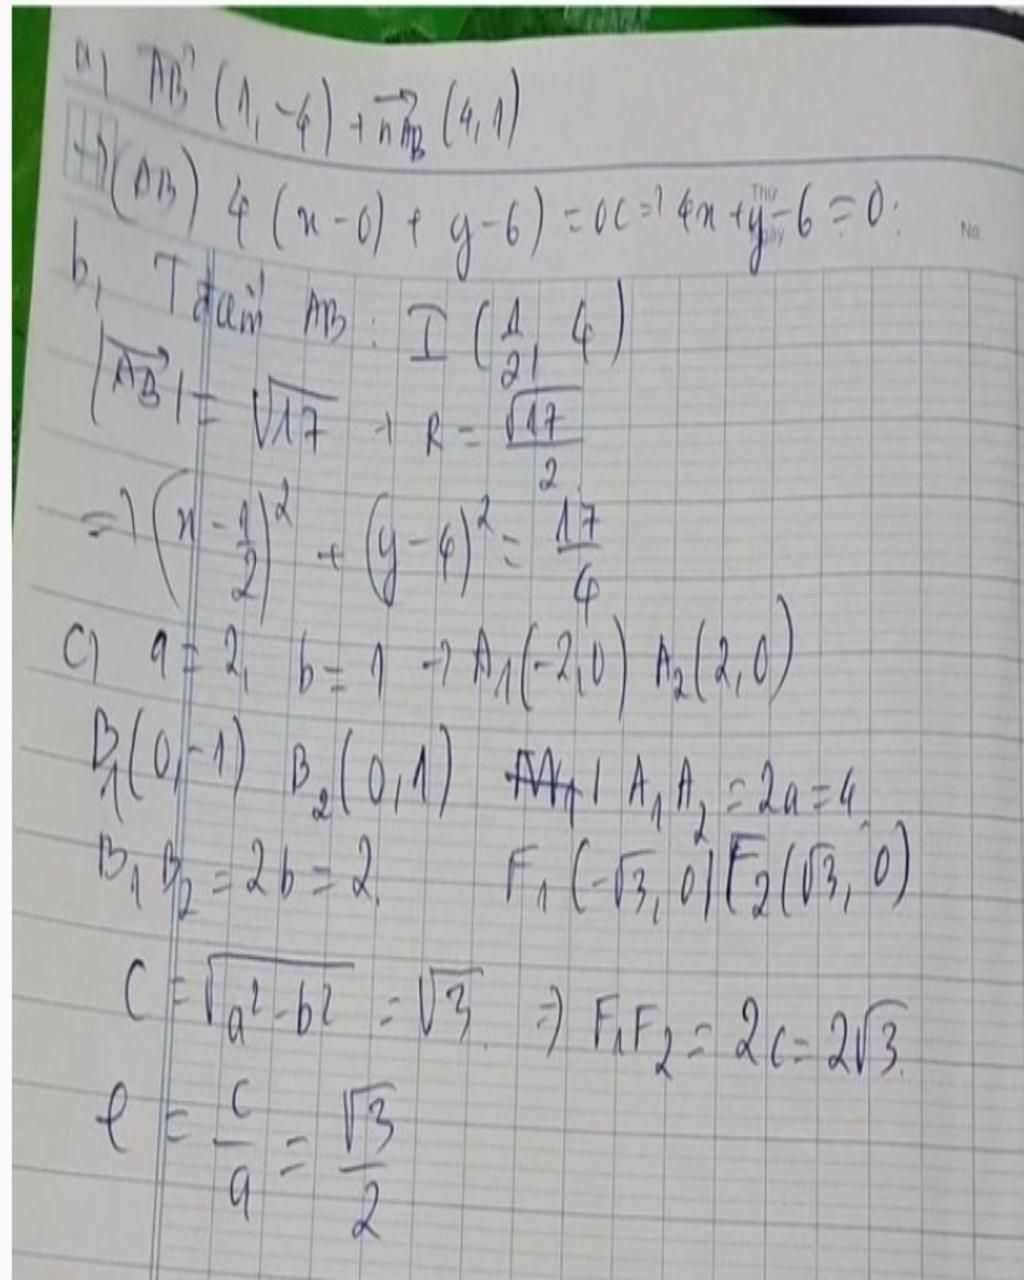 a) AB→ (1, -4) → n→AB (4, 1)
→ (AB) 4 (x - 0) + y - 6) = 0 <=> 4x + y - 6 = 0.
Thứ
No.
b, AB : I (1/2, 4)
|AB→| = √17 → R = √17/2
=> (x - 1/2)² + (y - 4)² = 17/4
c) a = 2, b = 1 → A₁(-2, 0) A₂(2, 0)
B₁(0, -1) B₂(0, 1) A₁A₂ = 2a = 4
B₁B₂ = 2b = 2. F₁(-√3, 0) F₂(√3, 0)
C = √a² - b² = √3. => F₁F₂ = 2c = 2√3.
e = c/a = √3/2